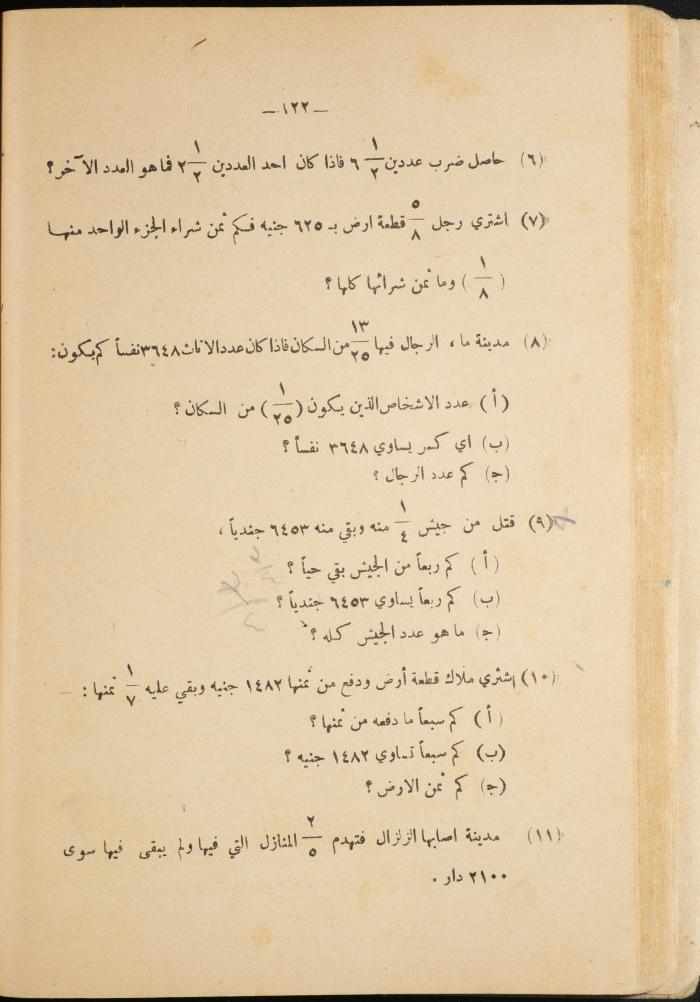 — ١٢٢ —
(٦) حاصل ضرب عددين ٦ ١/٢ فاذا كان احد العددين ٢ ١/٢ فما هو العدد الآخر؟
(٧) اشتري رجل ٥/٨ قطعة ارض بـ ٦٢٥ جنيه فكم ثمن شراء الجزء الواحد منهـا
(١/٨) وما ثمن شرائها كلها؟
(٨) مدينة ما، الرجال فيها ١٣/٢٥ من السكان فاذا كان عدد الاناث ٣٦٤٨ نفساً كم يكون:
(أ) عدد الاشخاص الذين يكون (١/٢٥) من السكان؟
(ب) اي كسر يساوي ٣٦٤٨ نفساً؟
(ج) كم عدد الرجال؟
(٩) قتل من جيش ١/٤ منه وبقي منه ٦٤٥٣ جندياً،
(أ) كم ربعاً من الجيش بقي حياً؟
(ب) كم ربعاً يساوي ٦٤٥٣ جندياً؟
(ج) ما هو عدد الجيش كله؟
(١٠) اشتري ملاك قطعة أرض ودفع من ثمنها ١٤٨٢ جنيه وبقي عليه ١/٧ ثمنها:
(أ) كم سبعاً ما دفعه من ثمنها؟
(ب) كم سبعاً تساوي ١٤٨٢ جنيه؟
(ج) كم ثمن الارض؟
(١١) مدينة اصابها الزلزال فتهدم ٢/٥ المنازل التي فيها ولم يبقى فيها سوى
٢١٠٠ دار.